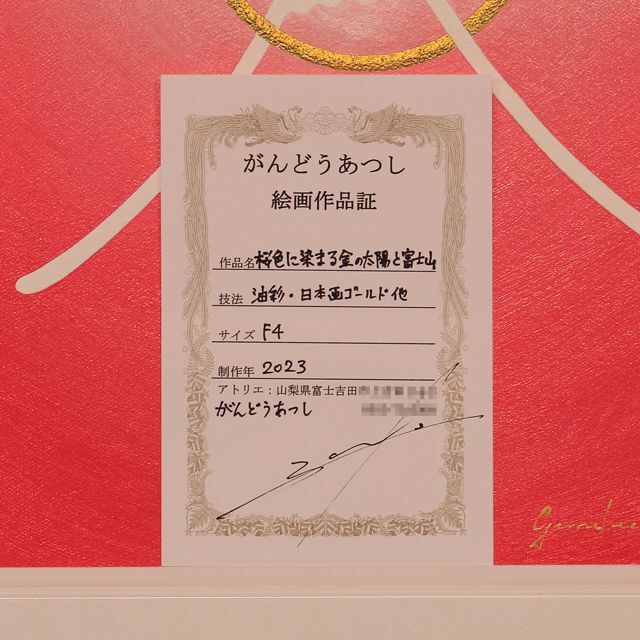 がんどうあつし
絵画作品証
作品名 桜色に染まる金の太陽と富士山
技法 油彩・日本画ゴールド他
サイズ F4
制作年 2023
アトリエ：山梨県富士吉田
がんどうあつし